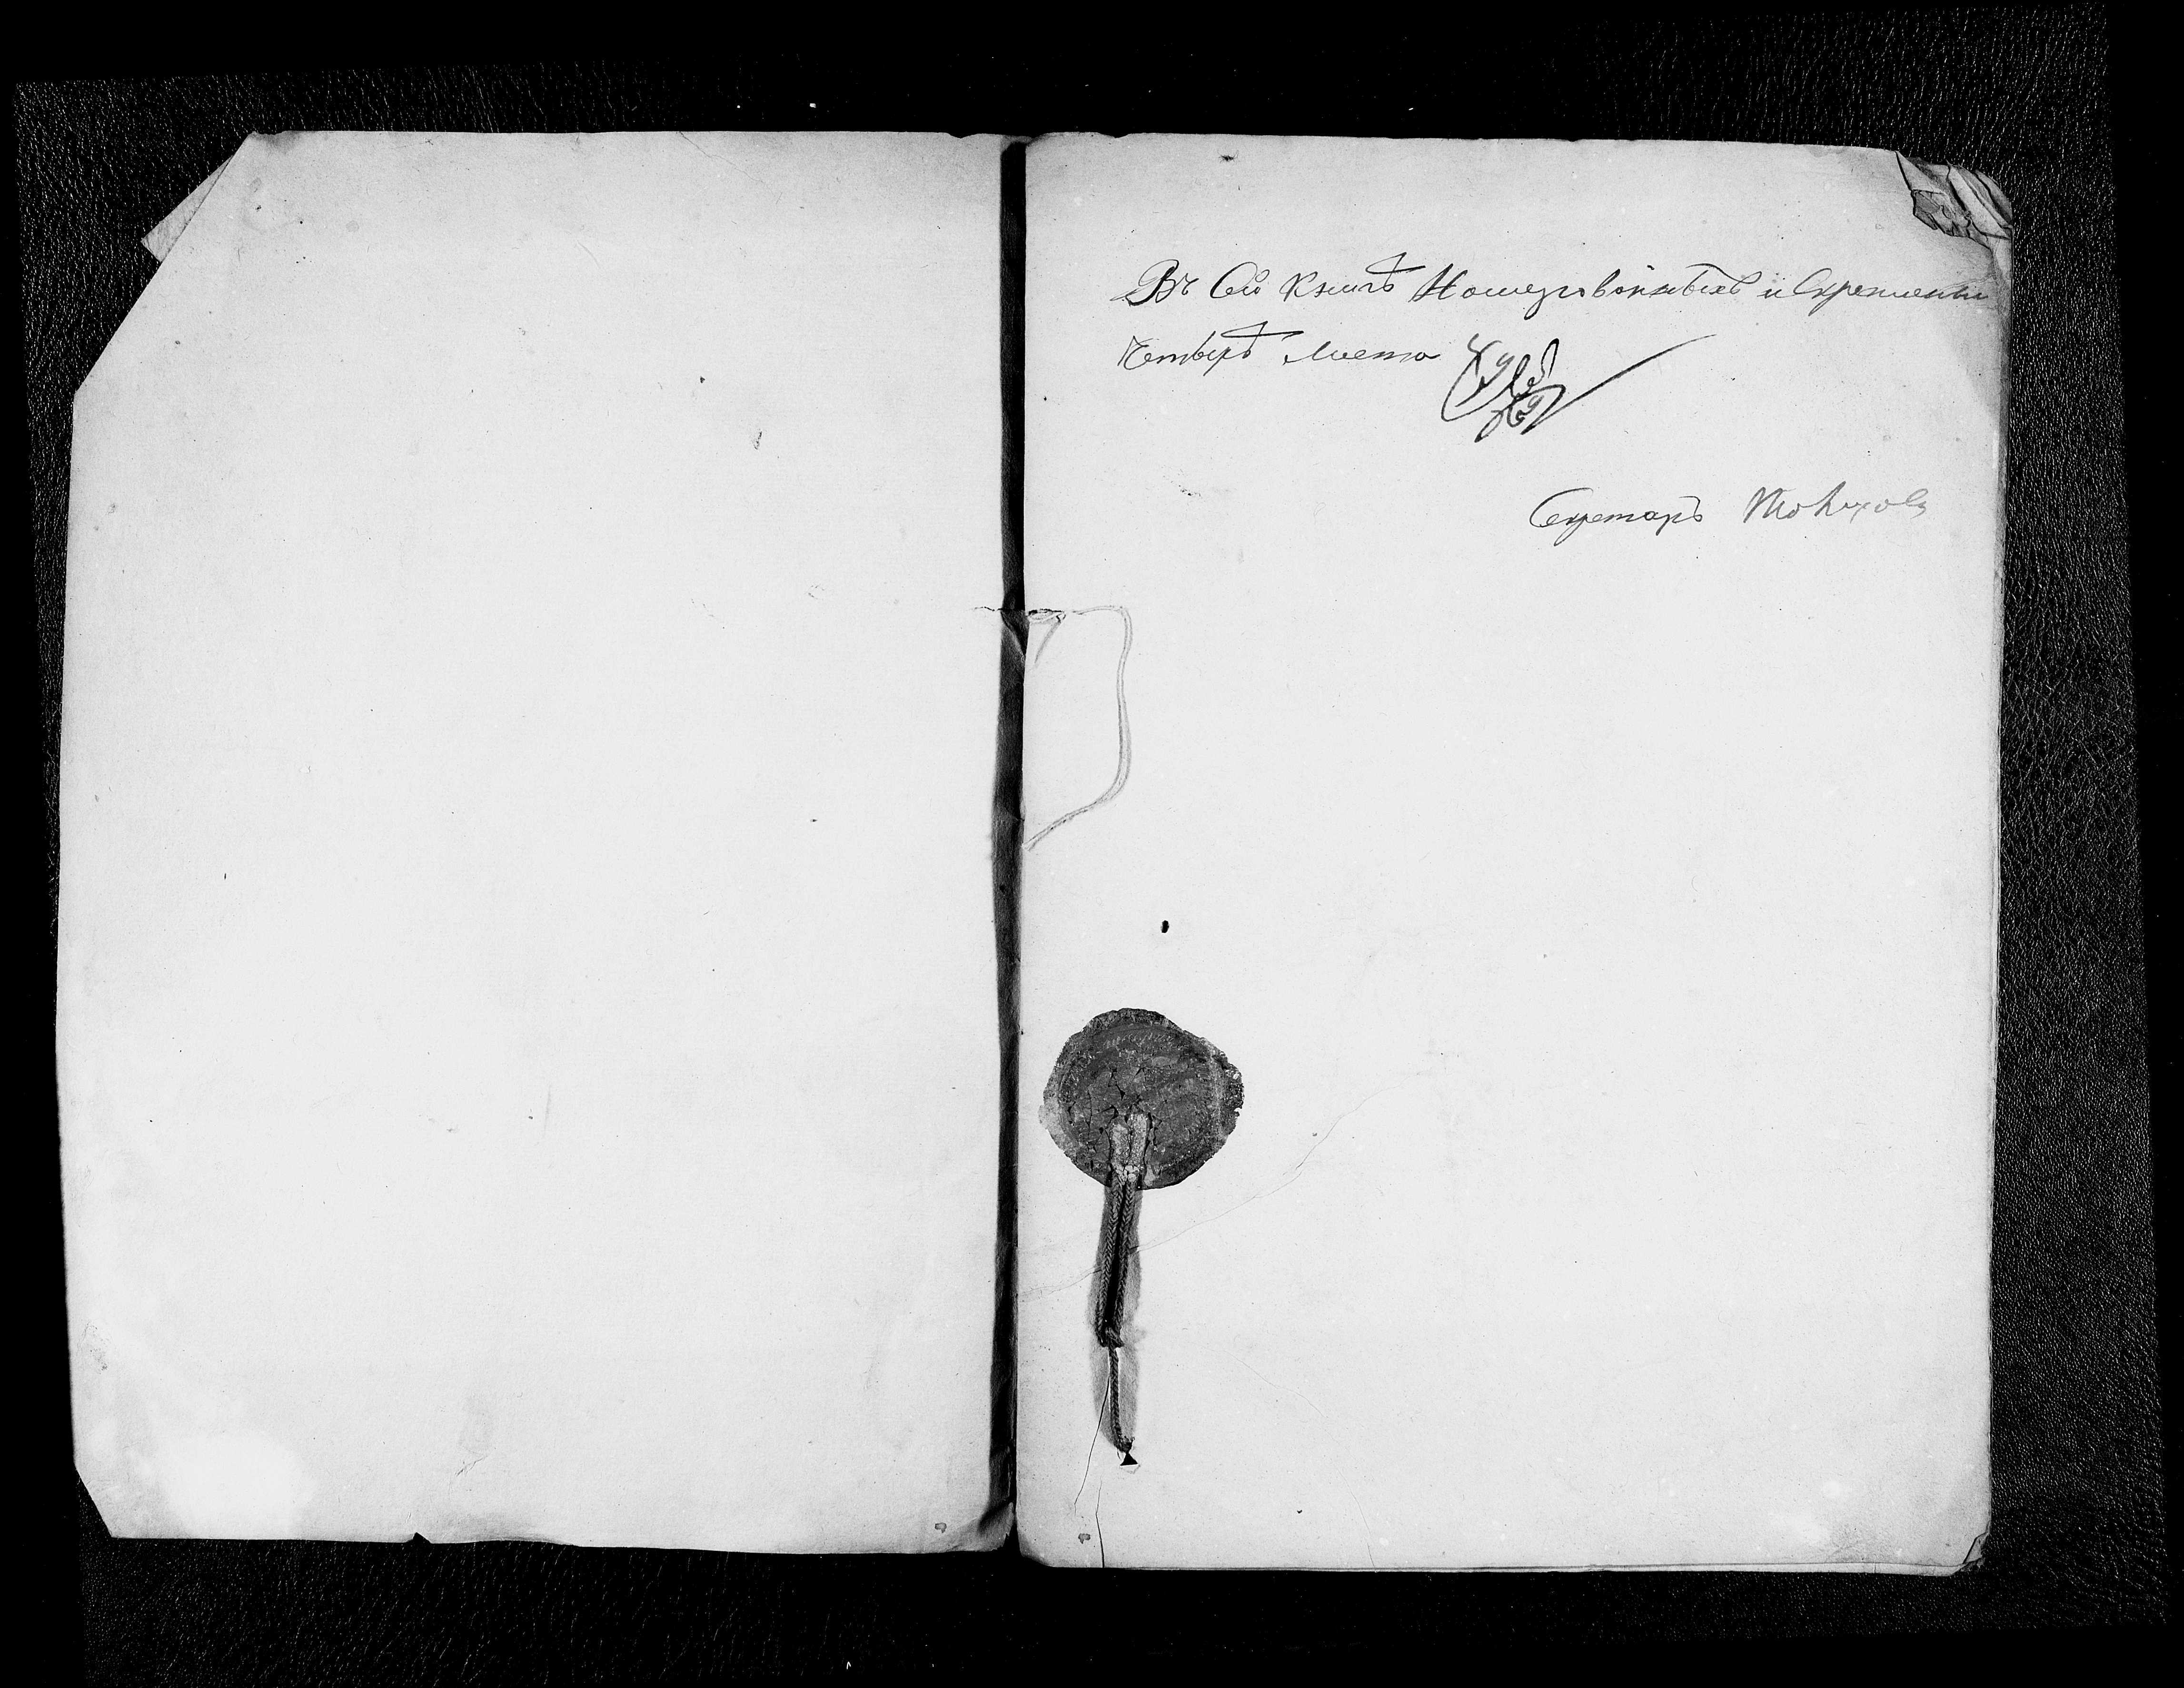 Въ сей книгѣ Номерованныхъ и Скрепленны
Четыре листа
Секретарь